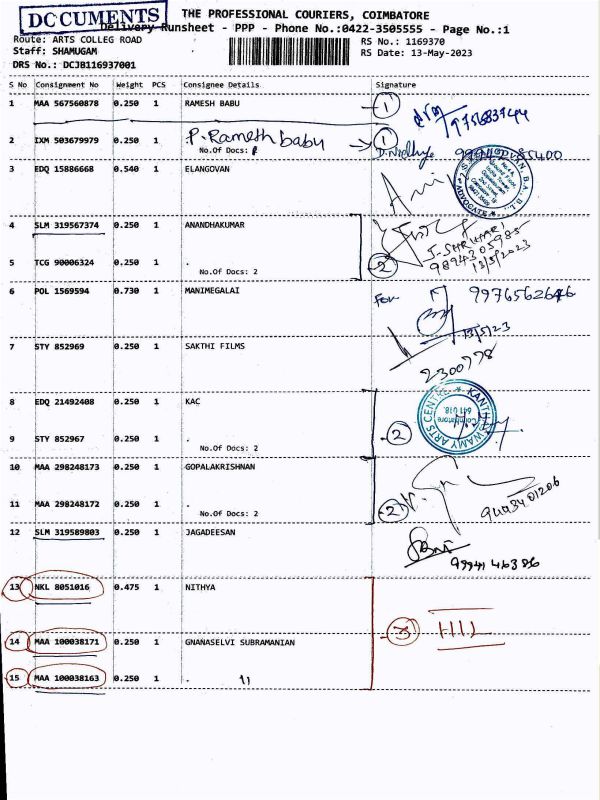 DOCUMENTS
THE PROFESSIONAL COURIERS, COIMBATORE
Delivery Runsheet - PPP - Phone No.:0422-3505555 - Page No.:1
Route: ARTS COLLEG ROAD
RS No.: 1169370
Staff: SHAMUGAM
RS Date: 13-May-2023
DRS No.: DCJB116937001
S No Consignment No Weight PCS Consignee Details Signature
1 MAA 567560878 0.250 1 RAMESH BABU 1
2 IXM 503679979 0.250 1 P. Ramesh babu 1
No.Of Docs:
D. Nidhya 9994285400
3 EDQ 15886668 0.540 1 ELANGOVAN
ADVOCATE
4 SLM 319567374 0.250 1 ANANDHAKUMAR
J. SHRIHARI
9894305985
13/5/2023
5 TCG 90006324 0.250 1 .
No.Of Docs: 2
2
6 POL 1569594 0.730 1 MANIMEGALAI
For 9976562646
13/5/23
7 STY 852969 0.250 1 SAKTHI FILMS
2300778
8 EDQ 21492408 0.250 1 KAC
KANTHASWAMY ARTS CENTRE
Coimbatore
641 018.
9 STY 852967 0.250 1 .
No.Of Docs: 2
2
10 MAA 298248173 0.250 1 GOPALAKRISHNAN
11 MAA 298248172 0.250 1 .
No.Of Docs: 2
2
9443401206
12 SLM 319589803 0.250 1 JAGADEESAN
9994146386
13 NKL 8051016 0.475 1 NITHYA
14 MAA 100038171 0.250 1 GNANASELVI SUBRAMANIAN
3
15 MAA 100038163 0.250 1 . 11